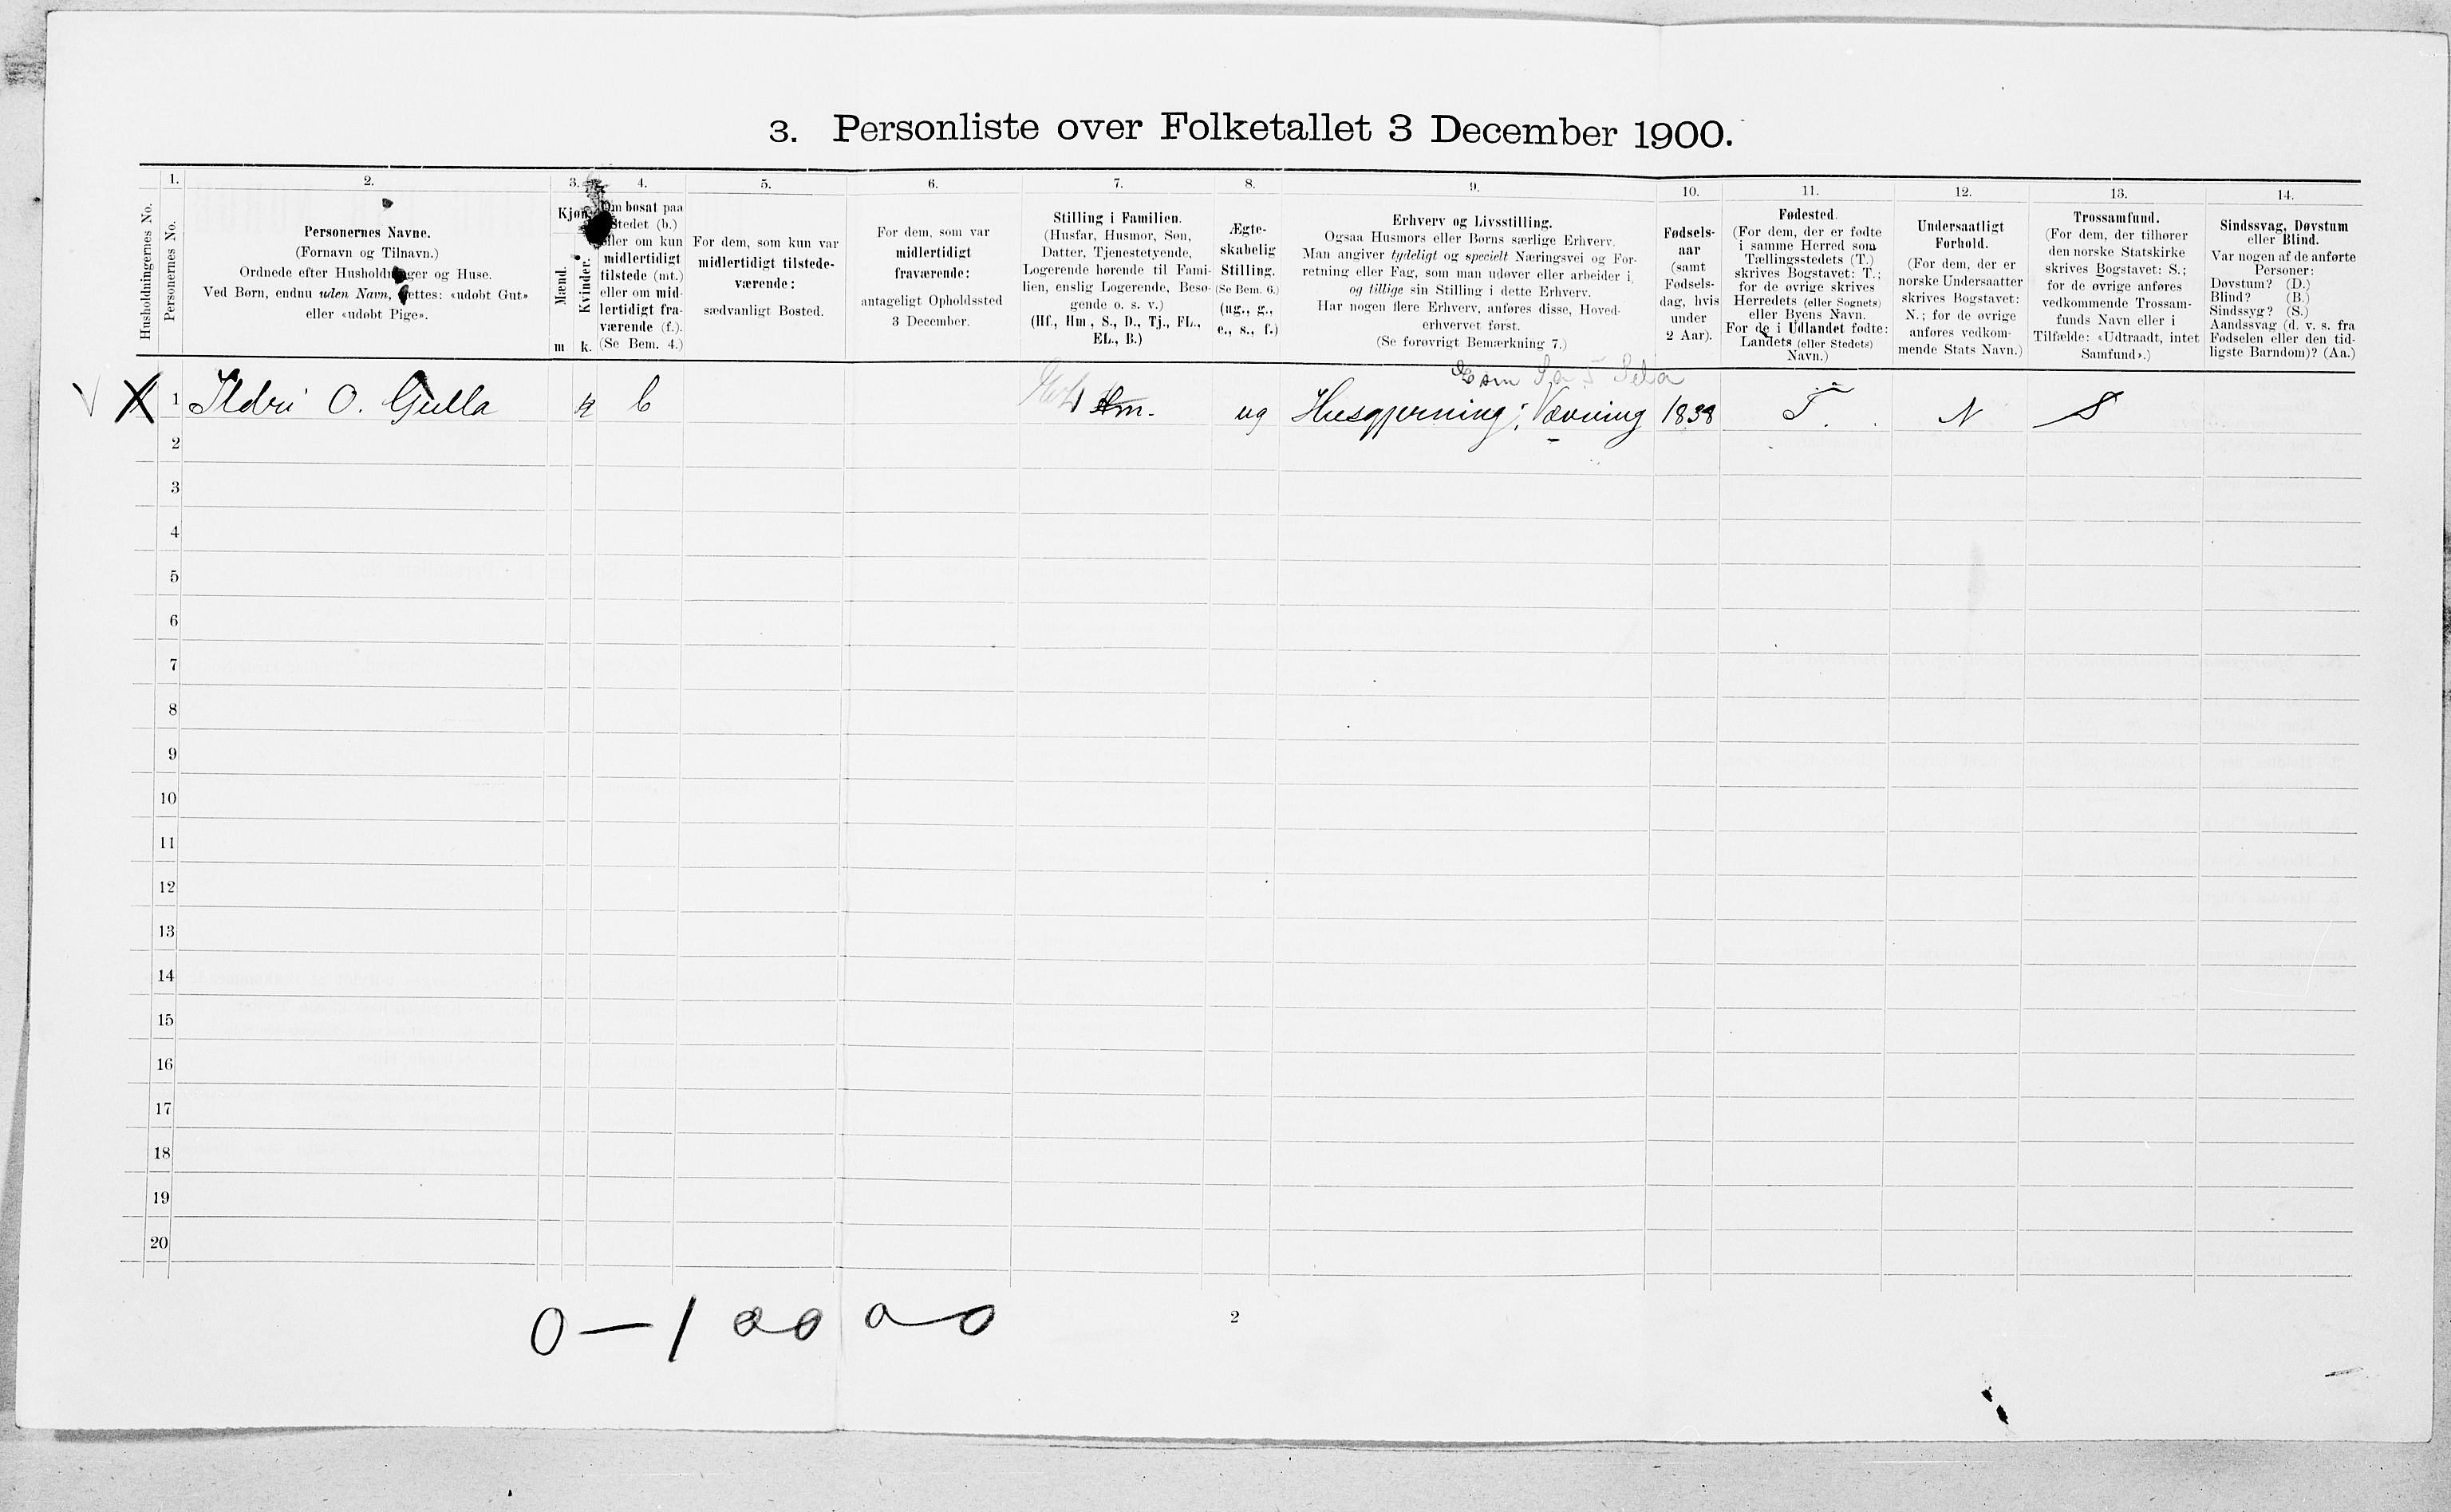 3. Personliste over Folketallet 3 December 1900.
1. 2. 3. 4. 5. 6. 7. 8. 9. 10. 11. 12. 13. 14.
Husholdningernes No.
Personernes No.
Personernes Navne.
(Fornavn og Tilnavn.)
Ordnede efter Husholdninger og Huse.
Ved Børn, endnu uden Navn, sættes: «udøbt Gut»
eller «udøbt Pige».
Kjøn.
Mænd.
Kvinder.
m k.
Om bosat paa
Stedet (b.)
eller om kun
midlertidigt
tilstede (mt.)
eller om mid-
lertidigt fra-
værende (f.).
(Se Bem. 4.)
For dem, som kun var
midlertidigt tilstede-
værende:
sædvanligt Bosted.
For dem, som var
midlertidigt
fraværende:
antageligt Opholdssted
3 December.
Stilling i Familien.
(Husfar, Husmor, Søn,
Datter, Tjenestetyende,
Logerende hørende til Fami-
lien, enslig Logerende, Besø-
gende o. s. v.)
(Hf., Hm., S., D., Tj., FL.,
EL., B.)
Ægte-
skabelig
Stilling.
(Se Bem. 6.)
(ug., g.,
e., s., f.)
Erhverv og Livsstilling.
Ogsaa Husmors eller Børns særlige Erhverv.
Man angiver tydeligt og specielt Næringsvei og For-
retning eller Fag, som man udøver eller arbeider i,
og tillige sin Stilling i dette Erhverv.
Har nogen flere Erhverv, anføres disse, Hoved-
erhvervet først.
(Se forøvrigt Bemærkning 7.)
Fødsels-
aar
(samt
Fødsels-
dag, hvis
under
2 Aar).
Fødested.
(For dem, der er fødte
i samme Herred som
Tællingsstedets (T.)
skrives Bogstavet: T.;
for de øvrige skrives
Herredets (eller Sognets)
eller Byens Navn.
For de i Udlandet fødte:
Landets (eller Stedets)
Navn.)
Undersaatligt
Forhold.
(For dem, der er
norske Undersaatter
skrives Bogstavet:
N.; for de øvrige
anføres vedkom-
mende Stats Navn.)
Trossamfund.
(For dem, der tilhører
den norske Statskirke
skrives Bogstavet: S.;
for de øvrige anføres
vedkommende Trossam-
funds Navn eller i
Tilfælde: «Udtraadt, intet
Samfund».)
Sindssvag, Døvstum
eller Blind.
Var nogen af de anførte
Personer:
Døvstum? (D.)
Blind? (B.)
Sindssyg? (S.)
Aandssvag (d. v. s. fra
Fødselen eller den tid-
ligste Barndom)? (Aa.)
1 Ildri O. Gulla k b Hm. ug Husgjerning; Vævning 1838 T. N S
2
3
4
5
6
7
8
9
10
11
12
13
14
15
16
17
18
19
20
0 — 1
2